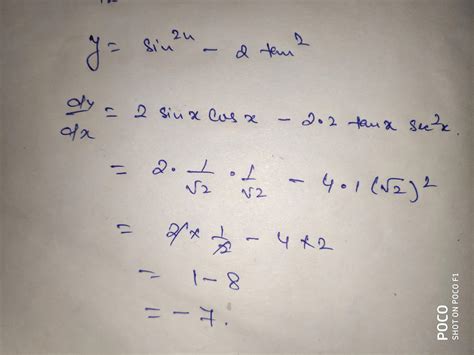 y = sin²ⁿ - 2 tan²
dy/dx = 2 sinx cosx - 2·2 tanx sec²x.
= 2 · 1/√2 · 1/√2 - 4·1 (√2)²
= 2 × 1/2 - 4×2
= 1-8
= -7.
POCO
SHOT ON POCO F1